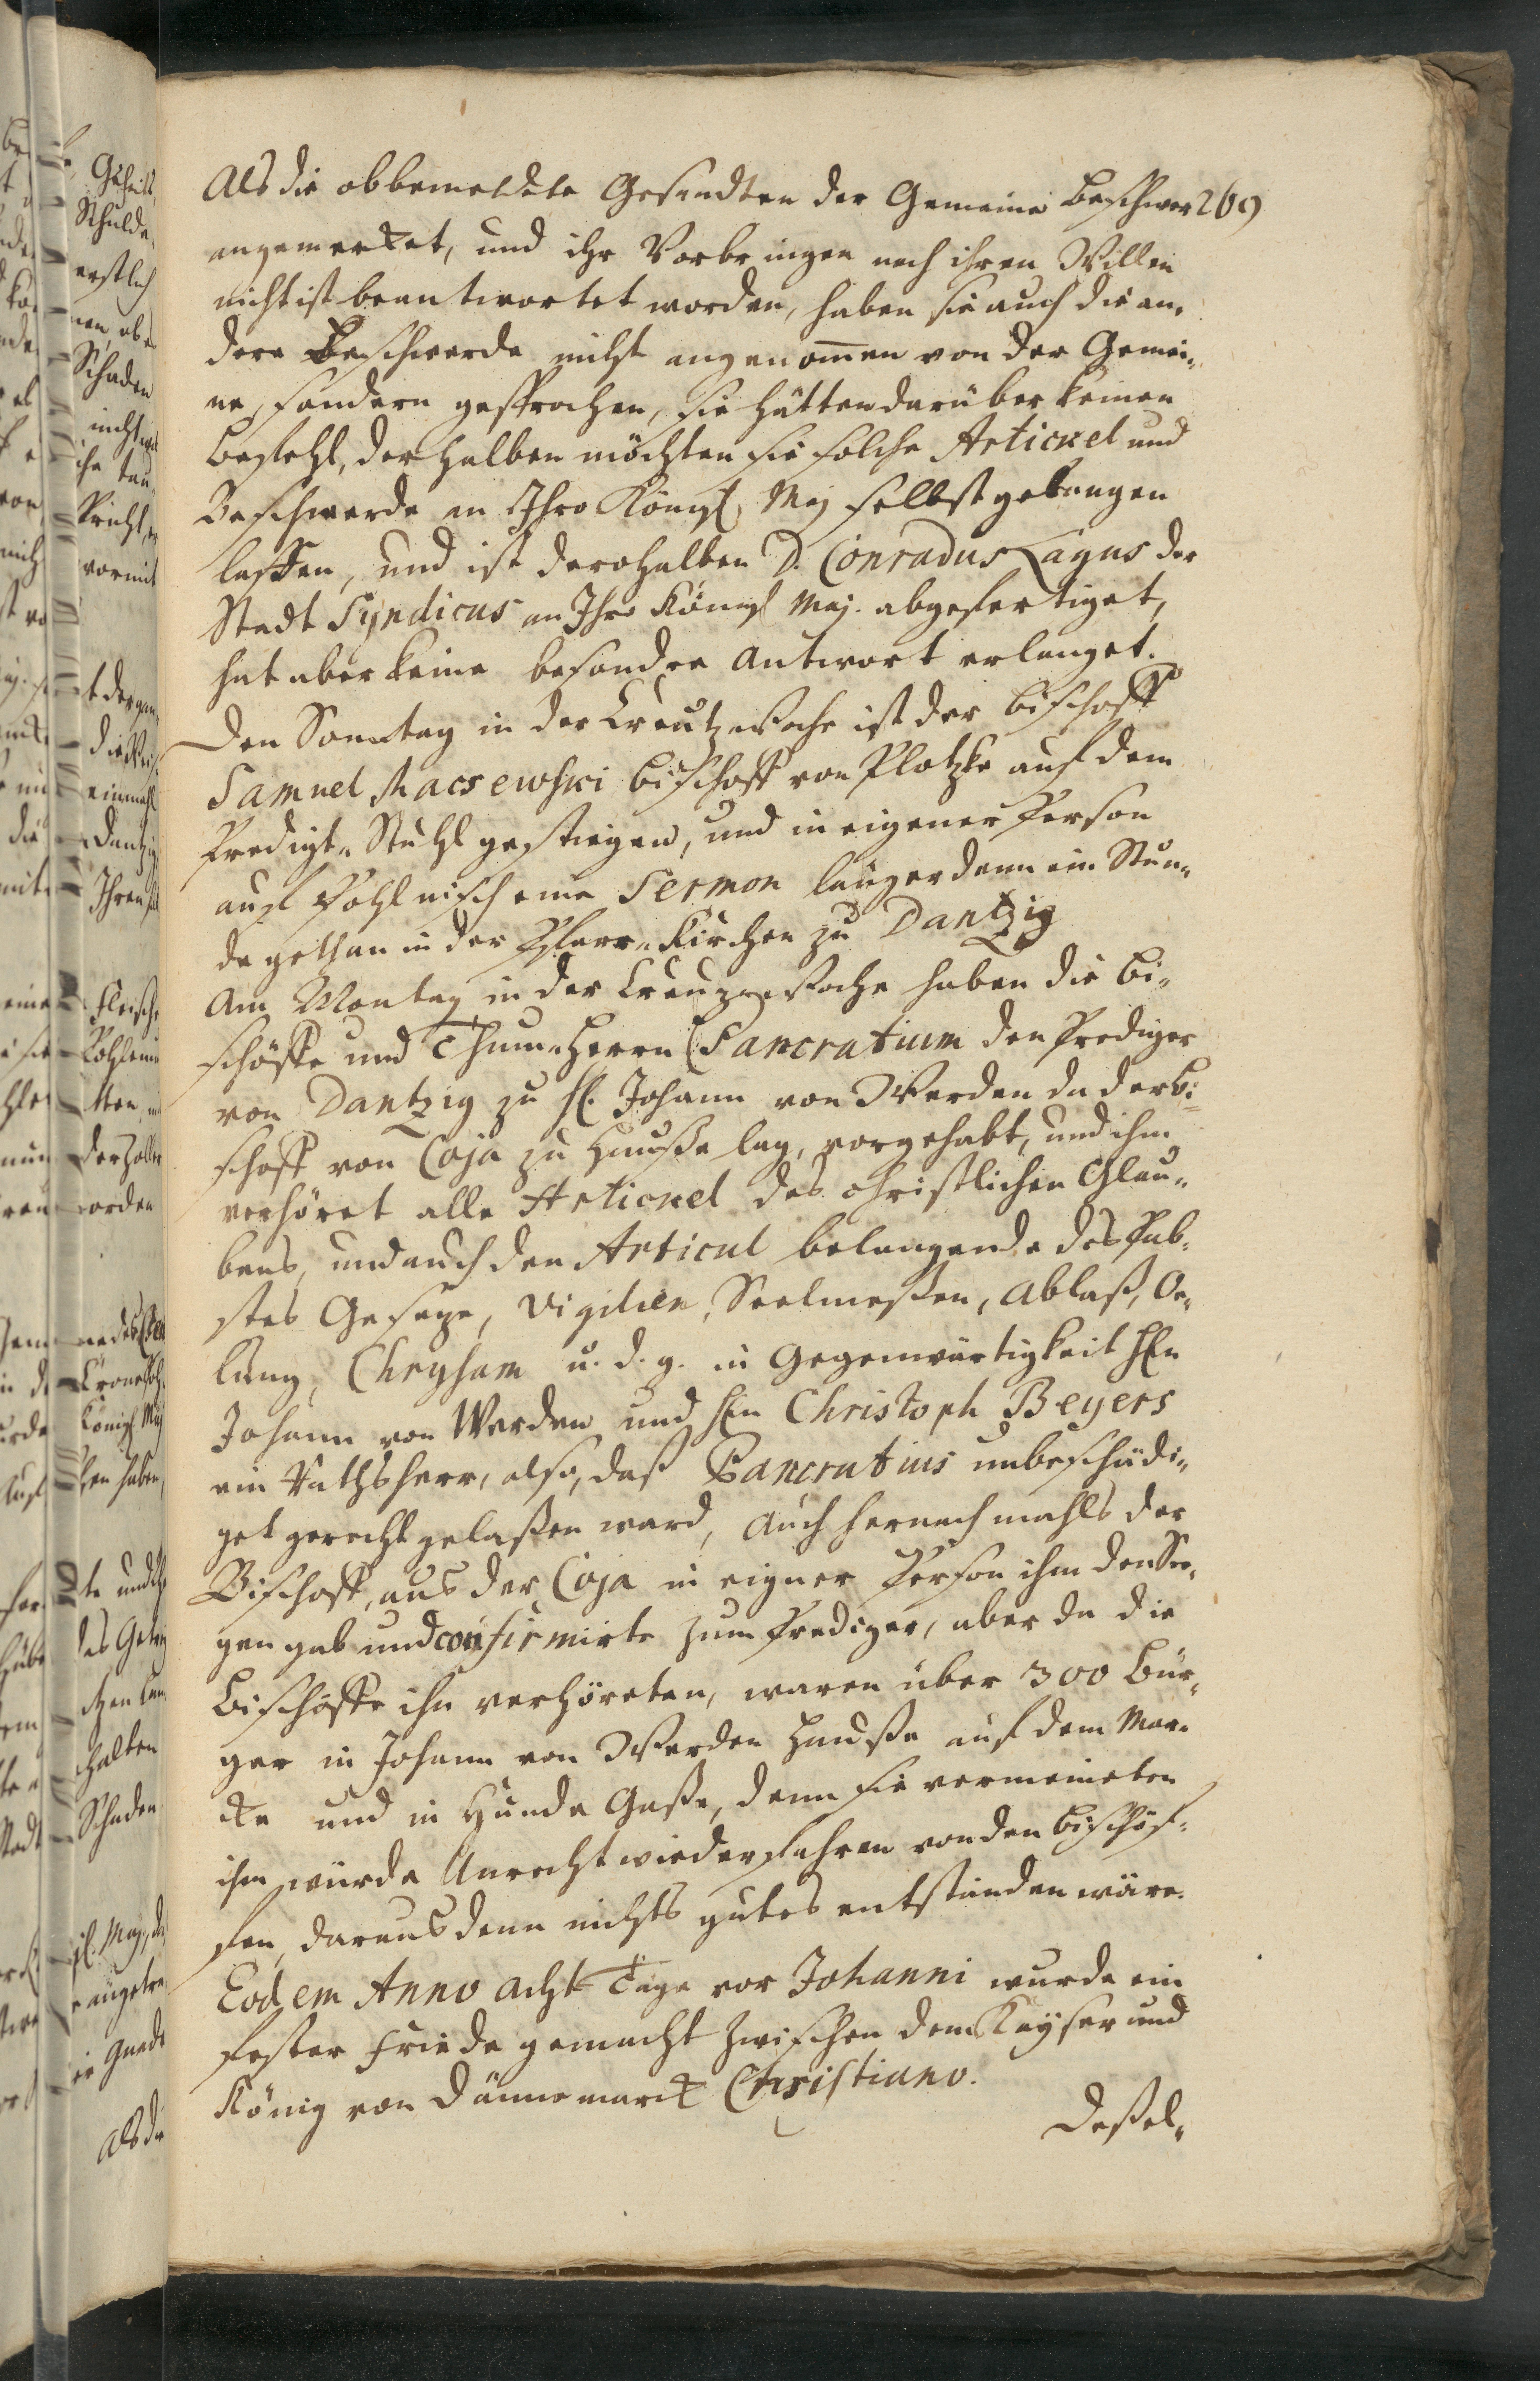 Als die obbemeldete Gesandten der Gemeine Beschwer 269
angemerket, und ihr Vorbringen nach ihren Willen
nicht ist beantwortet worden, haben sie auch die an-
dere Beschwerde nicht angenom̄en von der Gemei-
ne, sondern gesprochen, sie hätten darüber keinen
Befehl, derhalben möchten sie solche Artickel und
Beschwerde an Ihro Königl. Maj selbst gelangen
lassen, und ist derohalben D. Conradus Lagus der
Stadt Syndicus an Ihro Königl Maj. abgefertiget,
hat aber keine besondre Antwort erlanget.
Den Sonntag in der Creutzwoche ist der Bischoff
Samuel Macsewski Bischoff von Plotzke auf dem
Predigt-Stuhl gestiegen, und in eigener Person
auf Pohlnisch eine Sermon länger denn ein Stun-
de gethan in der Pfarr-Kirchen zu Dantzig
Am Montag in der Creuzwoche haben die Bi-
schöffe und Thum-Herrn Pancratium den Prediger
von Dantzig zu H. Johann von Werden da der Bi-
schoff von Coja zu Hause lag, vorgehabt, und ihm
verhöret alle Artickel des christlichen Glau-
bens, und auch den Articul belangende des Pab-
stes Gesetze, Vigilien, Seelmeßen, Ablaß, Oe-
lung, Chrysam u. d. g. in Gegenwärtigkeit HEn
Johann von Werden und HEn Christoph Beyers
ein Rathsherr, also, daß Pancratius unbeschädi-
get gerecht gelaßen ward, auch hernachmahls der
Bischoff, aus der Coja in eigner Person ihm den See-
gen gab und confirmirte zum Prediger, aber da die
Bischöffe ihn verhöreten, waren über 300 Bür-
ger in Johann von Werden Hauße auf dem Mar-
ckte und in Hunde Gaße, denn sie vermeineten
ihm würde Unrecht wiederfahren von den Bischöf-
fen, daraus denn nichts gutes entstanden wäre.
Eodem Anno acht Tage vor Johanni wurde ein
fester Friede gemacht zwischen dem Kayser und
König von Dännemarck Christiano.
Deßel-